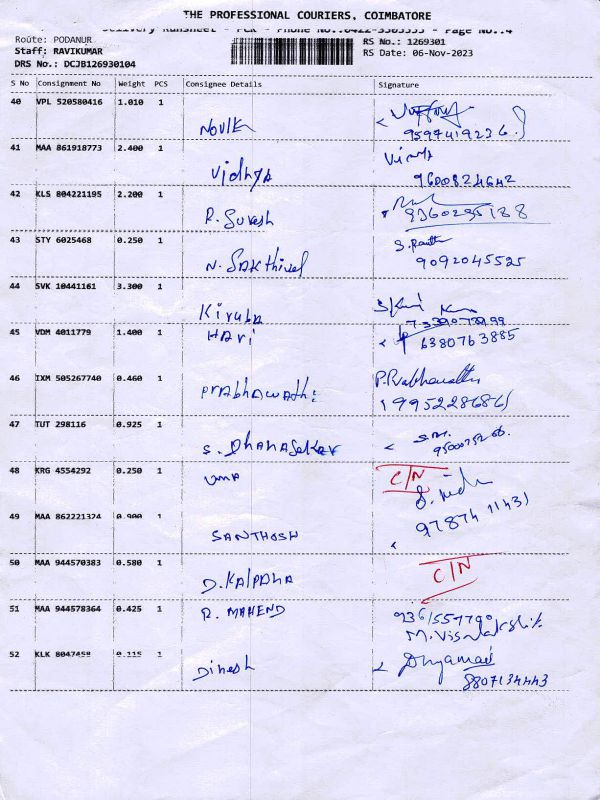 THE PROFESSIONAL COURIERS, COIMBATORE
Delivery Runsheet - PCR - Phone No.:0422-3503555 - Page No.:4
Route: PODANUR
Staff: RAVIKUMAR
DRS No.: DCJB126930104
RS No.: 1269301
RS Date: 06-Nov-2023
S No Consignment No Weight PCS Consignee Details Signature
40 VPL 520580416 1.010 1
Novlk
9597419236
41 MAA 861918773 2.400 1
Vidhya
9600824642
42 KLS 804221195 2.200 1
R. Suresh
9360295188
43 STY 6025468 0.250 1
N. SAKthivel
9092045525
44 SVK 10441161 3.300 1
Kiruba
7339073999
45 VDM 4011779 1.400 1
HAri
6380763885
46 IXM 505267740 0.460 1
PrAbhAwAthi
P. Prabhavathi
9952286865
47 TUT 298116 0.925 1
S. DhanaSekar
48 KRG 4554292 0.250 1
UMA
C/N
49 MAA 862221324 0.900 1
SANTHOSH
9787411431
50 MAA 944570383 0.580 1
D. KAlpanA
C/N
51 MAA 944578364 0.425 1
R. MAHEND
M. Visalakshi
52 KLK 8047458 0.115 1
Dinesh
8807134443